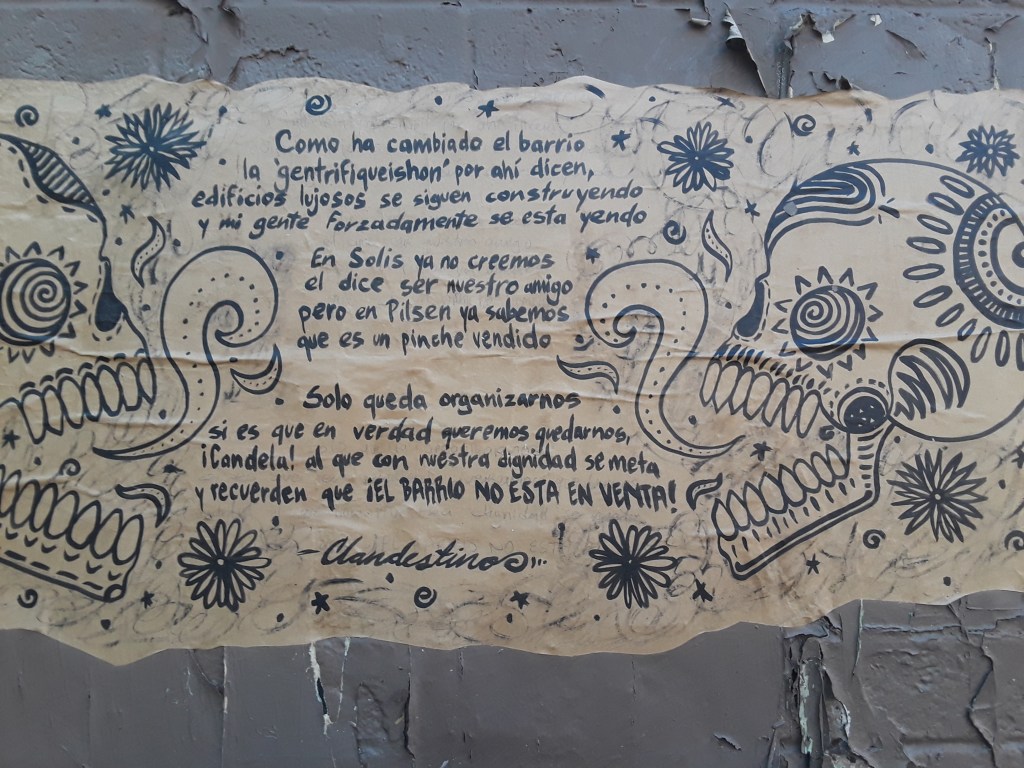 Como ha cambiado el barrio
la 'gentrifiqueishon' por ahí dicen,
edificios lujosos se siguen construyendo
y mi gente forzadamente se esta yendo
En Solis ya no creemos
el dice ser nuestro amigo
pero en Pilsen ya sabemos
que es un pinche vendido
Solo queda organizarnos
si es que en verdad queremos quedarnos,
¡Candela! al que con nuestra dignidad se meta
y recuerden que ¡EL BARRIO NO ESTA EN VENTA!
-Clandestino...